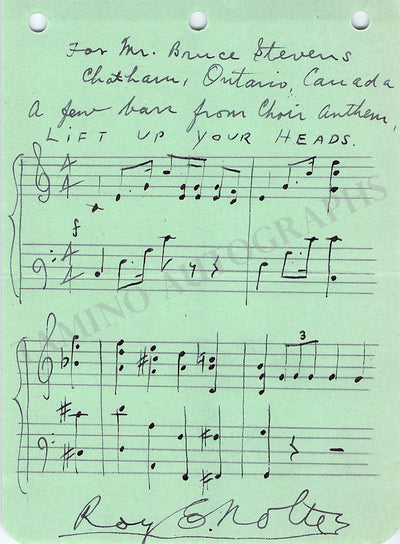 For Mr. Bruce Stevens
Chatham, Ontario, Canada
A few bars from Choir Anthem,
LIFT UP YOUR HEADS.
4 4
f
4 4
TAMINO AUTOGRAPHS
3
Roy E. Nolte